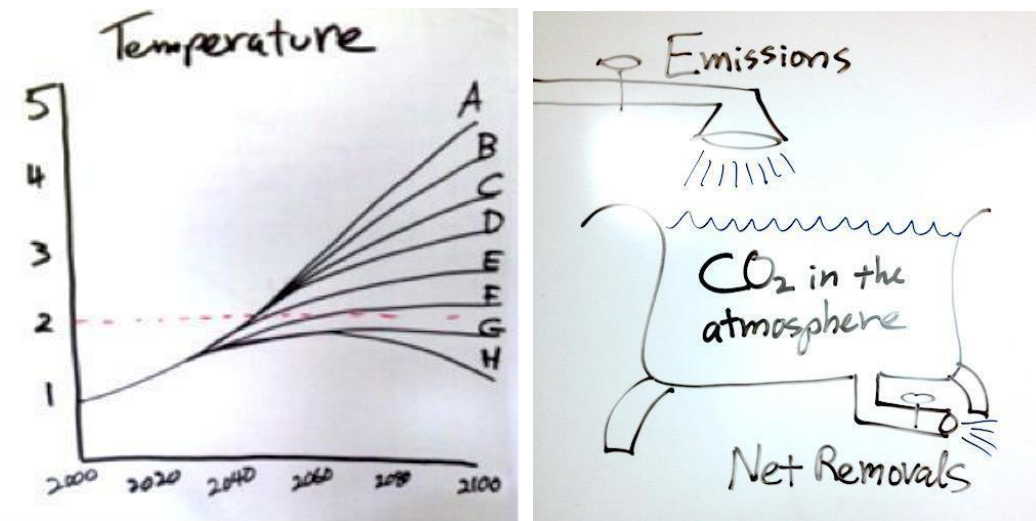 Temperature
5
4
3
2
1
A
B
C
D
E
F
G
H
2000 2020 2040 2060 2080 2100
Emissions
CO₂ in the
atmosphere
Net Removals